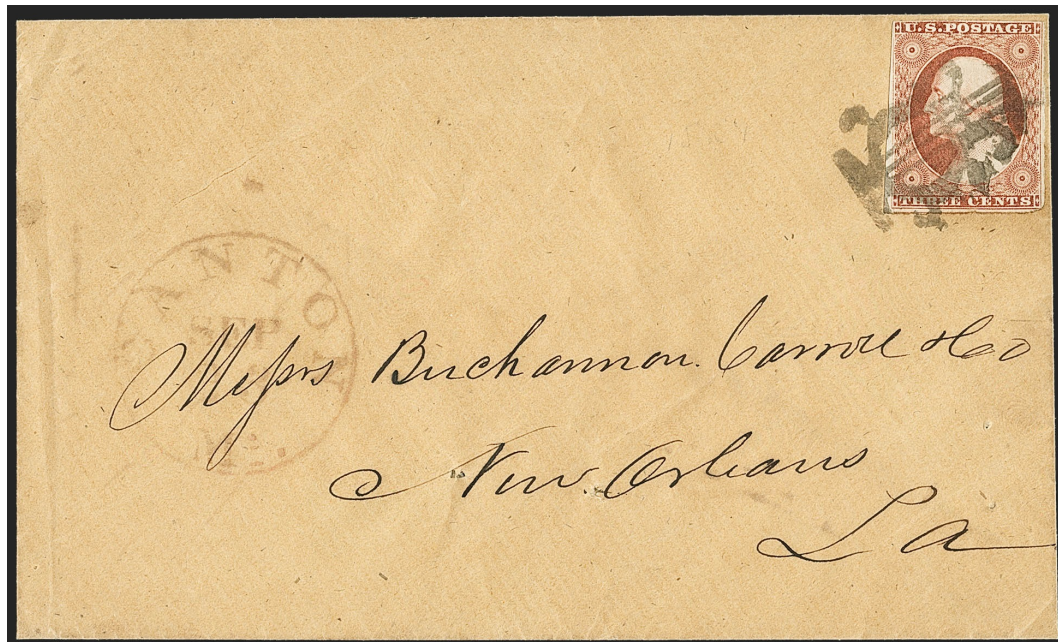 U.S. POSTAGE
THREE CENTS
CANTON
SEP
Messrs Buchannon. Carroll & Co
New. Orleans
La